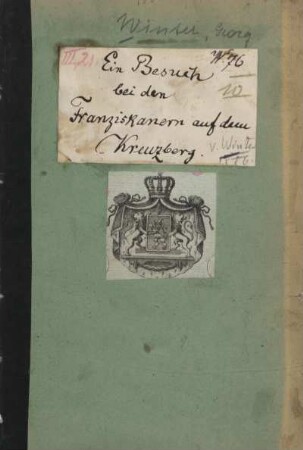 Winter, Georg
III,21
W.76
Ein Besuch
10
bei den
Franziskanern auf dem
Kreuzberg.
v. Winter